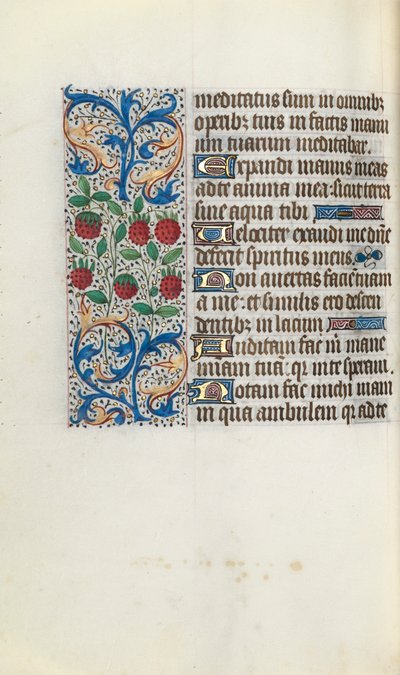 meditatus sum in omnibꝫ
operibꝫ tuis in factis manu
um tuarum meditabar.
Expandi manus meas
ad te anima mea sicut terra
sine aqua tibi
Uelociter exaudi me dn̄e
defecit spiritus meus
Non auertas faciē tuam
a me: et similis ero descen
dentibꝫ in lacum
Auditam fac m̄ mane
miam̄ tuā: qr in te speraui.
Notam fac michi uiam
in qua ambulem qr ad te